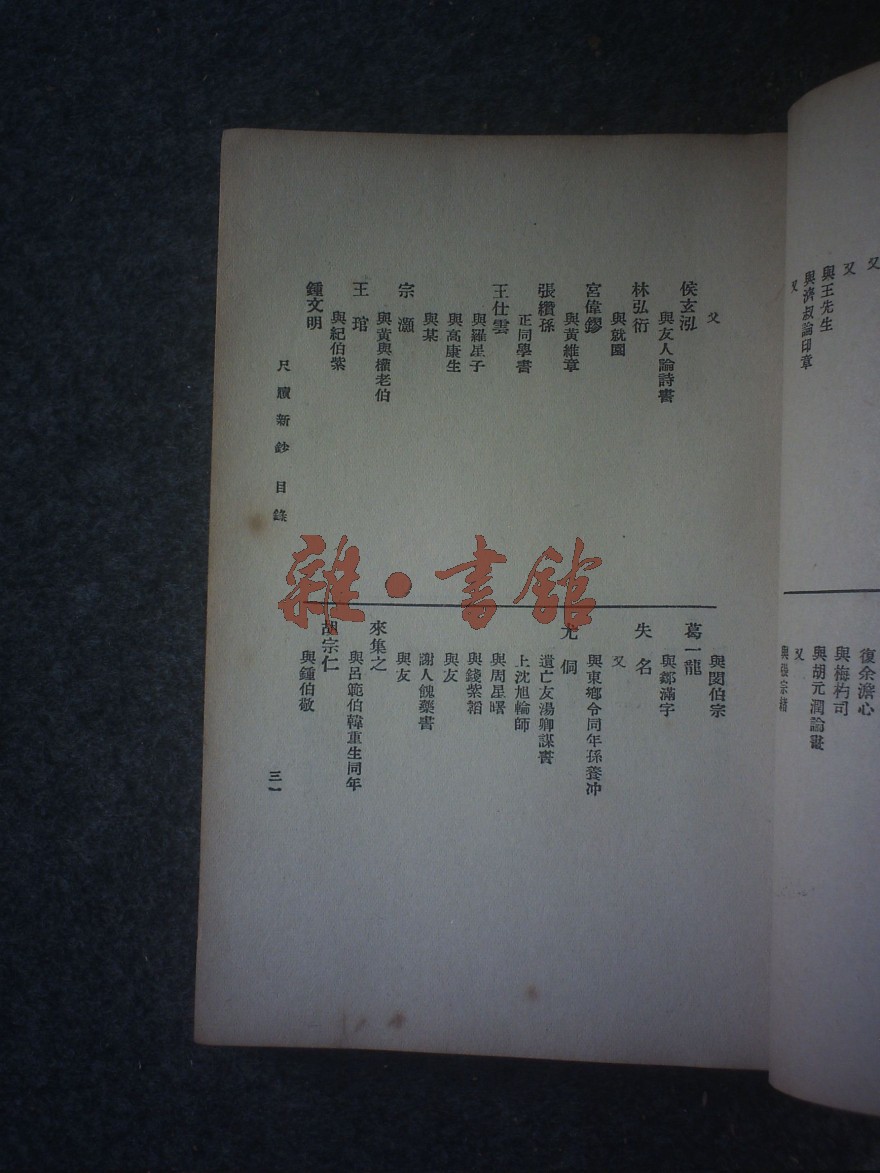 又
又
與王先生
與濟叔論印章
又
復余澹心
與梅杓司
與胡元潤論畫
又
又
侯玄泓
與友人論詩書
林弘衍
與就園
宮偉鏐
與黃維章
張纘孫
正同學書
王仕雲
與羅星子
與高康生
與某
宗灝
與黃與權老伯
王琯
與紀伯紫
鍾文明
尺牘新鈔 目錄
與閔伯宗
葛一龍
與鄒滿字
失名
又
與東鄉令同年孫養冲
尤侗
遺亡友湯卿謀書
上沈旭輪師
與周星曙
與錢紫韜
與友
謝人餽藥書
與友
來集之
與呂範伯韓重生同年
胡宗仁
與鍾伯敬
三一
雜·書館